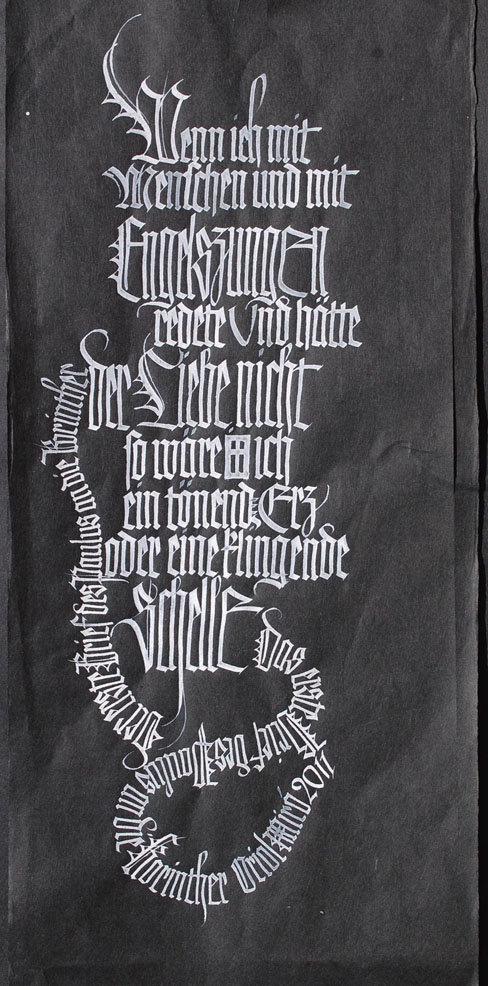 Wenn ich mit
Menschen und mit
Engelszungen
redete und hätte
der Liebe nicht
so wäre ich
ein tönend Erz
oder eine klingende
Schelle
Der erste Brief des Paulus an die Korinther
Das erste Brief des Paulus an die Korinther Oriol Miró